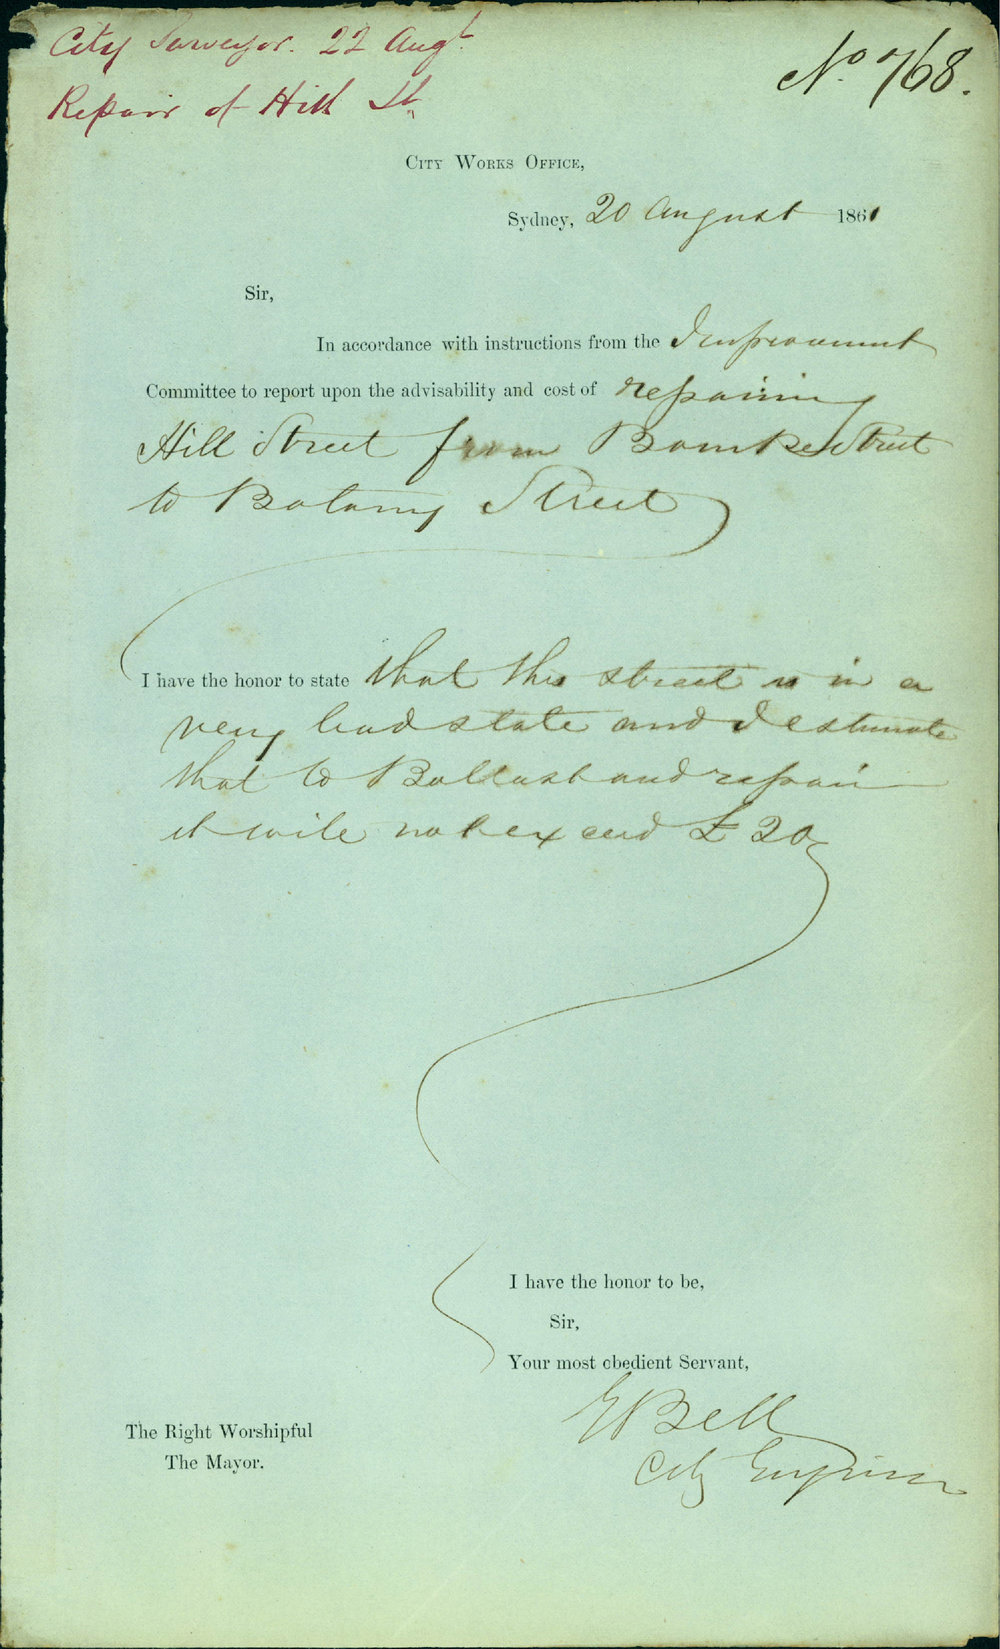 City Surveyor. 22 Augt.
Repair of Hill St.
No. 768.
City Works Office,
Sydney, 20 August 1861
Sir,
In accordance with instructions from the Improvement
Committee to report upon the advisability and cost of repairing
Hill Street from Street
to Botany Street
I have the honor to state that this street is in a
very bad state and I estimate
that to Ballast and repair
it will not exceed £20
I have the honor to be,
Sir,
Your most obedient Servant,
EBell
City Engineer
The Right Worshipful
The Mayor.